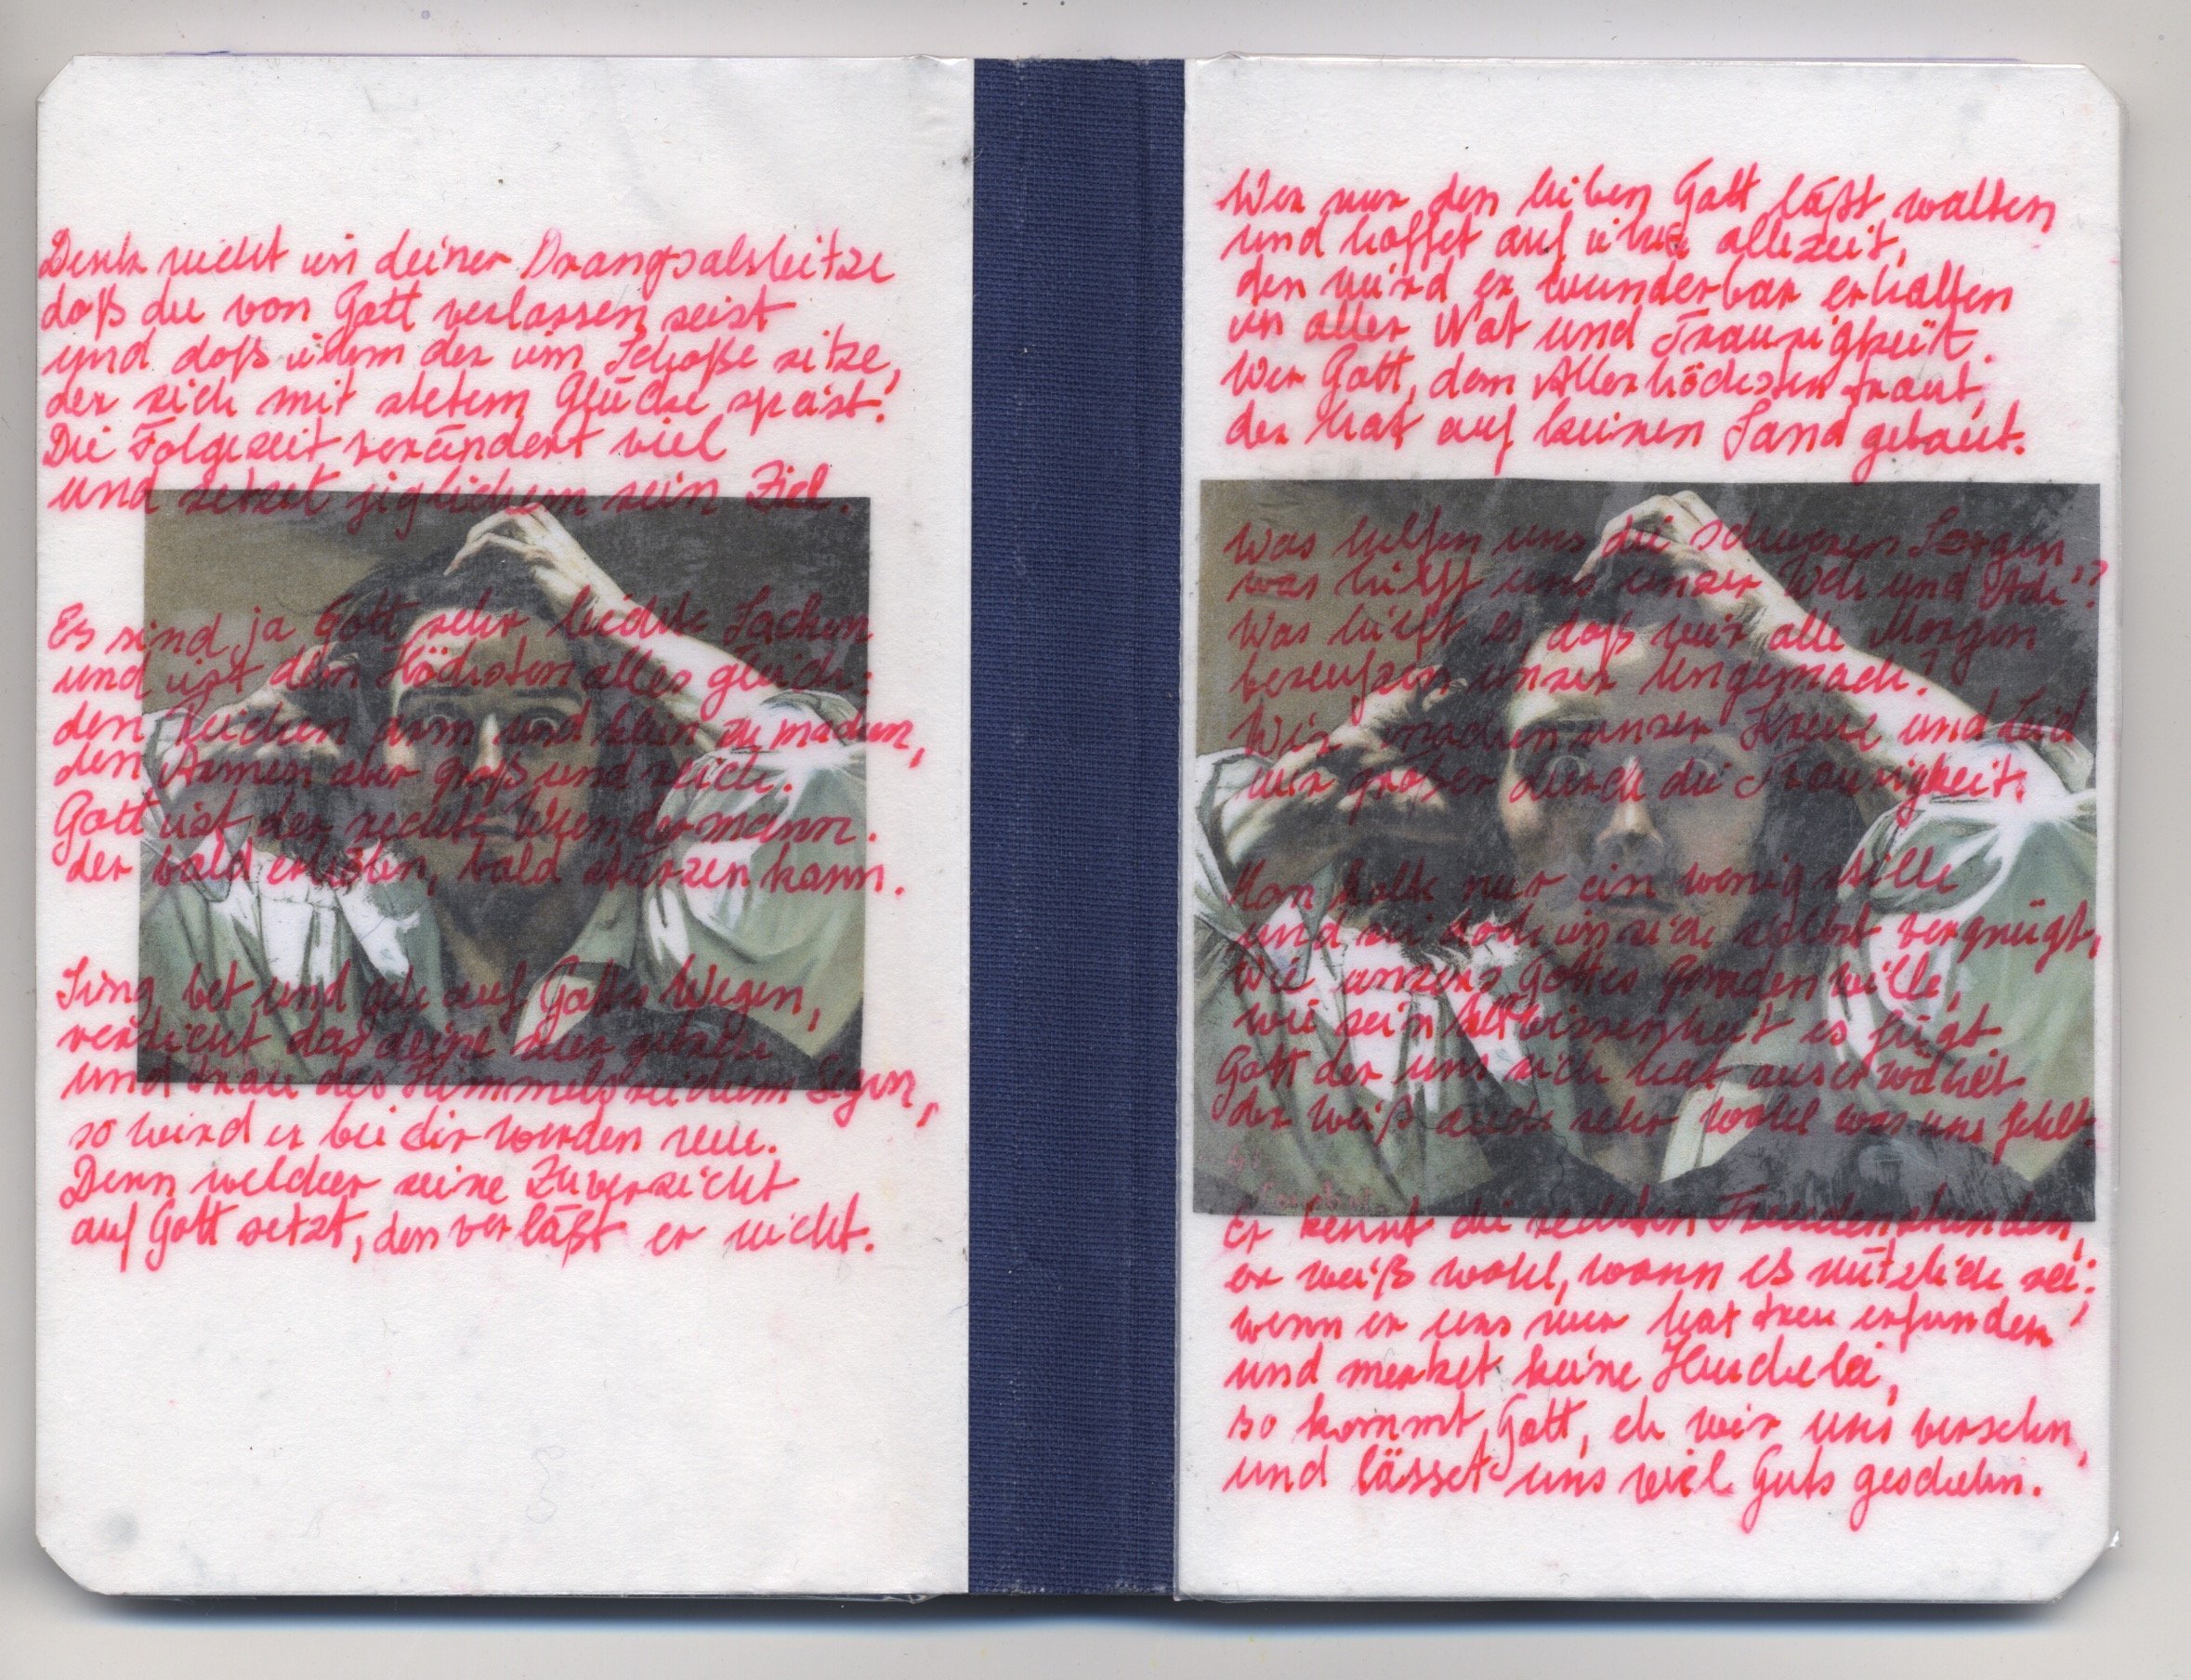 Denk nicht in deiner Drangsalshitze
daß du von Gott verlassen seist
und daß ihm der im Schoße sitze,
der sich mit stetem Glücke speist.
Die Folgezeit verändert viel
und setzet jeglichem sein Ziel.
Es sind ja Gott sehr leichte Sachen
und ist dem Höchsten alles gleich:
den Reichen arm und klein zu machen,
den Armen aber groß und reich.
Gott ist der rechte Wundermann.
der bald erhöhen, bald stürzen kann.
Sing, bet und geh auf Gottes Wegen,
verricht das deine nur getreu
und trau des Himmels reichem Segen,
so wird er bei dir werden neu.
Denn welcher seine Zuversicht
auf Gott setzt, den verläßt er nicht.
Wer nur den lieben Gott läßt walten
und hoffet auf ihn allezeit,
den wird er wunderbar erhalten
in aller Not und Traurigkeit.
Wer Gott, dem Allerhöchsten traut,
der hat auf keinen Sand gebaut.
Was helfen uns die schweren Sorgen
was hilft uns unser Weh und Ach?
Was hilft es daß wir alle Morgen
beseufzen unser Ungemach?
Wir machen unser Kreuz und Leid
nur größer durch die Traurigkeit.
Man halte nur ein wenig stille
und sei doch in sich selbst vergnügt,
wie unsers Gottes Gnadenwille,
wie sein Allwissenheit es fügt
Gott der uns sich hat auserwählt
der weiß auch sehr wohl was uns fehlt.
Er kennt die rechten Freudenstunden,
er weiß wohl, wann es nützlich sei;
wenn er uns nur hat treu erfunden
und merket keine Heuchelei,
so kommt Gott, eh wir uns versehn,
und lässet uns viel Guts geschehn.